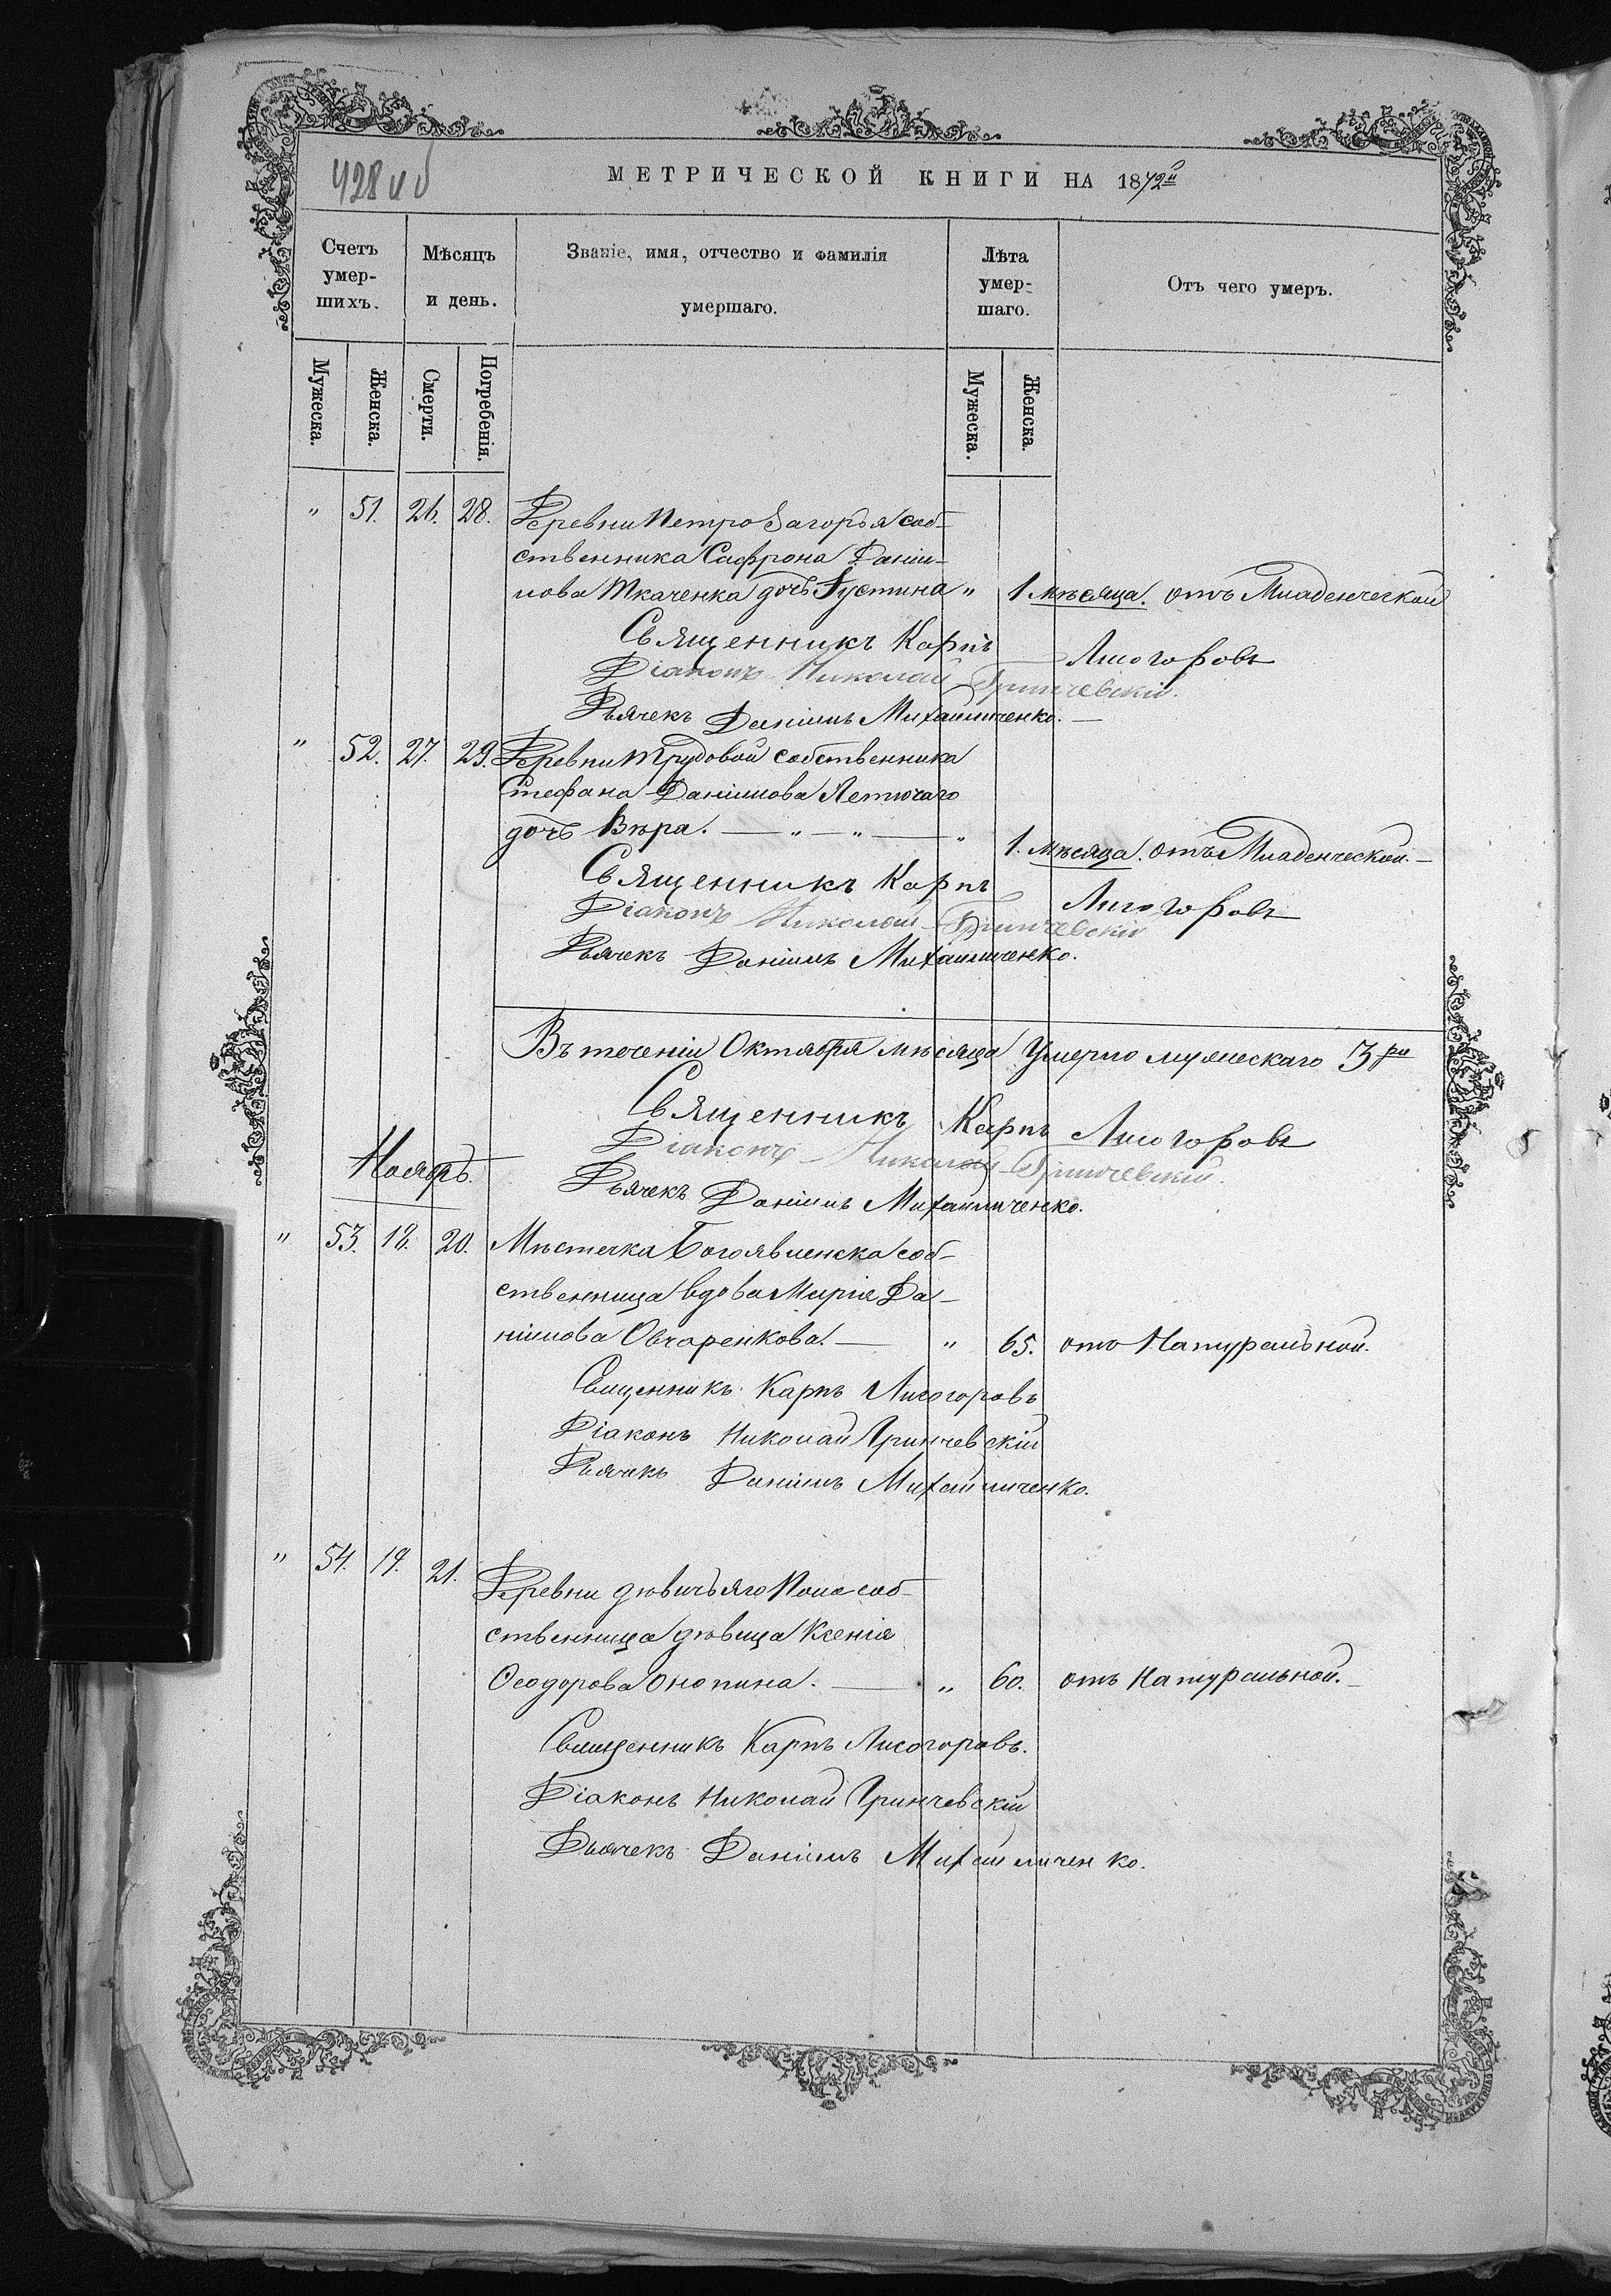 428 об
МЕТРИЧЕСКОЙ КНИГИ НА 1872й
Счетъ умер-шихъ.
Мѣсяцъ и день.
Званіе, имя, отчество и фамилія умершаго.
Лѣта умер-шаго.
Отъ чего умеръ.
Мужеска.
Женска.
Смерти.
Погребенія.
Мужеска.
Женска.
" 51. 26. 28. Деревни Петро Загорья соб-
ственника Сафрона Даніи-
лова Ткаченка дочь Іустина " 1 мѣсяца. отъ Младенческой
Священникъ Карпъ Лисогоровъ
Діаконъ Николай Гринчевскій.
Дьячекъ Даніилъ Михайличенко.
" 52. 27. 29. Деревни Трудовой собственника
Стефана Даніилова Летючаго
дочь Вѣра. — " — " — " 1. мѣсяца. отъ Младенческой. —
Священникъ Карпъ Лисогоровъ
Діаконъ Николай Гринчевскій
Дьячекъ Даніилъ Михайличенко.
Въ теченіи Октября мѣсяца Умерло мужескаго 3ри
Священникъ Карпъ Лисогоровъ
Діаконъ Николай Гринчевскій.
Ноябрь.
Дьячекъ Даніилъ Михайличенко.
" 53. 18. 20. Мѣстечка Богоявленска соб-
ственница вдова Марія Да-
ніилова Овчаренкова. — " 65. отъ Натуральной.
Священникъ Карпъ Лисогоровъ
Діаконъ Николай Гринчевскій
Дьячекъ Даніилъ Михайличенко.
" 54. 19. 21. Деревни дѣвичьяго Поля соб-
ственница дѣвица Ксенія
Ѳеодорова Онопина. — " 60. отъ Натуральной. —
Священникъ Карпъ Лисогоровъ.
Діаконъ Николай Гринчевскій
Дьячекъ Даніилъ Михайличенко.